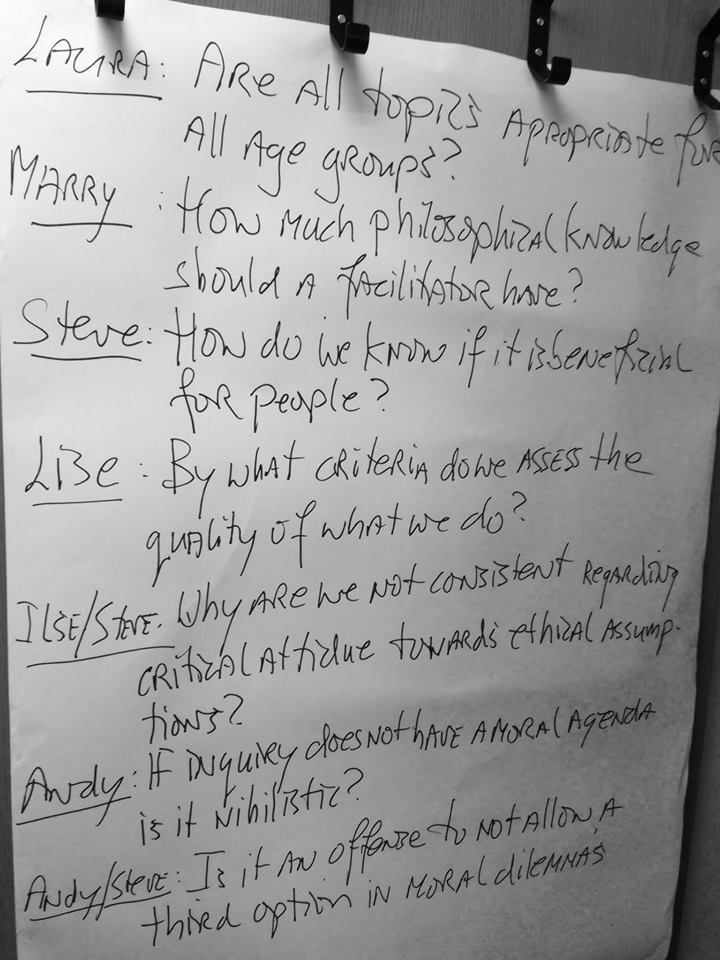 LAURA: ARE All topics APROPRIATE for
All Age groups?
MARRY : How much philosophical knowledge
should a facilitator have?
Steve: How do we know if it is beneficial
for people?
: By what criteria do we ASSESS the
quality of what we do?
ILSE/STEVE. Why ARE we NOT CONSISTENT REGARDING
CRITICAL Attidue TOWARDS ethical ASSUMP-
tions?
Andy: If inquiry does NOT HAVE A MORAL AGENDA
is it Nihilistic?
Andy/Steve: Is it AN offense to NOT ALLOW A
third option IN MORAL dilemmas